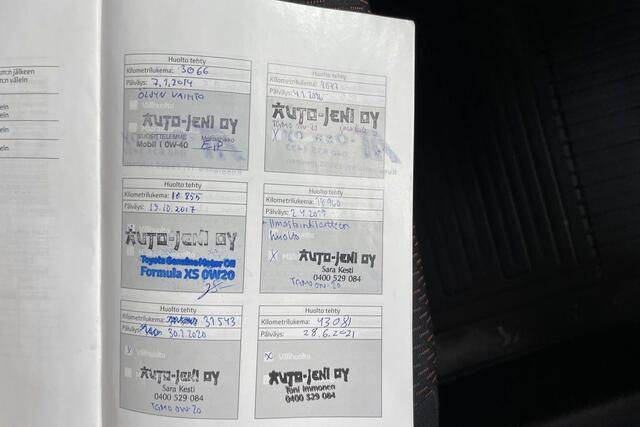 m:n jälkeen
n välein
ein
ein
ein
Huolto tehty
Kilometrilukema: 3066
Päiväys: 7.1.2014
ÖLJYN VAIHTO
Välihuolto
AUTO-JENI OY
SUOSITTELEMME
Mobil 1 0W-40
Huolto tehty
Kilometrilukema:
Päiväys:
AUTO-JENI OY
TGMO 0W-20
X
Huolto tehty
Kilometrilukema: 10 855
Päiväys: 19.10.2017
AUTO-JENI OY
Toyota Genuine Motor Oil
Formula XS 0W20
Huolto tehty
Kilometrilukema:
Päiväys:
Ilmastointilaitteen
huolto
X
AUTO-JENI OY
Sara Kesti
0400 529 084
TGMO 0W-20
Huolto tehty
Kilometrilukema: 37543
Päiväys: 30.7.2020
Välihuolto
AUTO-JENI OY
Sara Kesti
0400 529 084
TGMO 0W-20
Huolto tehty
Kilometrilukema: 43081
Päiväys: 28.6.2021
X Välihuolto
AUTO-JENI OY
Toni Immonen
0400 529 084